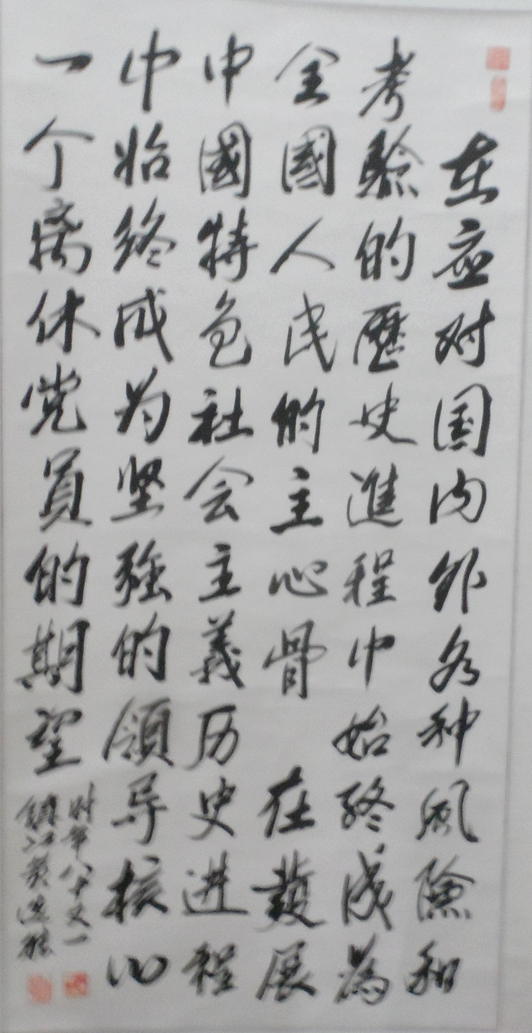 在应对国内外各种风险和
考驗的歷史進程中始终成為
全國人民的主心骨 在發展
中國特色社会主義历史进程
中始终成为坚强的領导核心
一个离休党員的期望
时年八十又一
鎮江